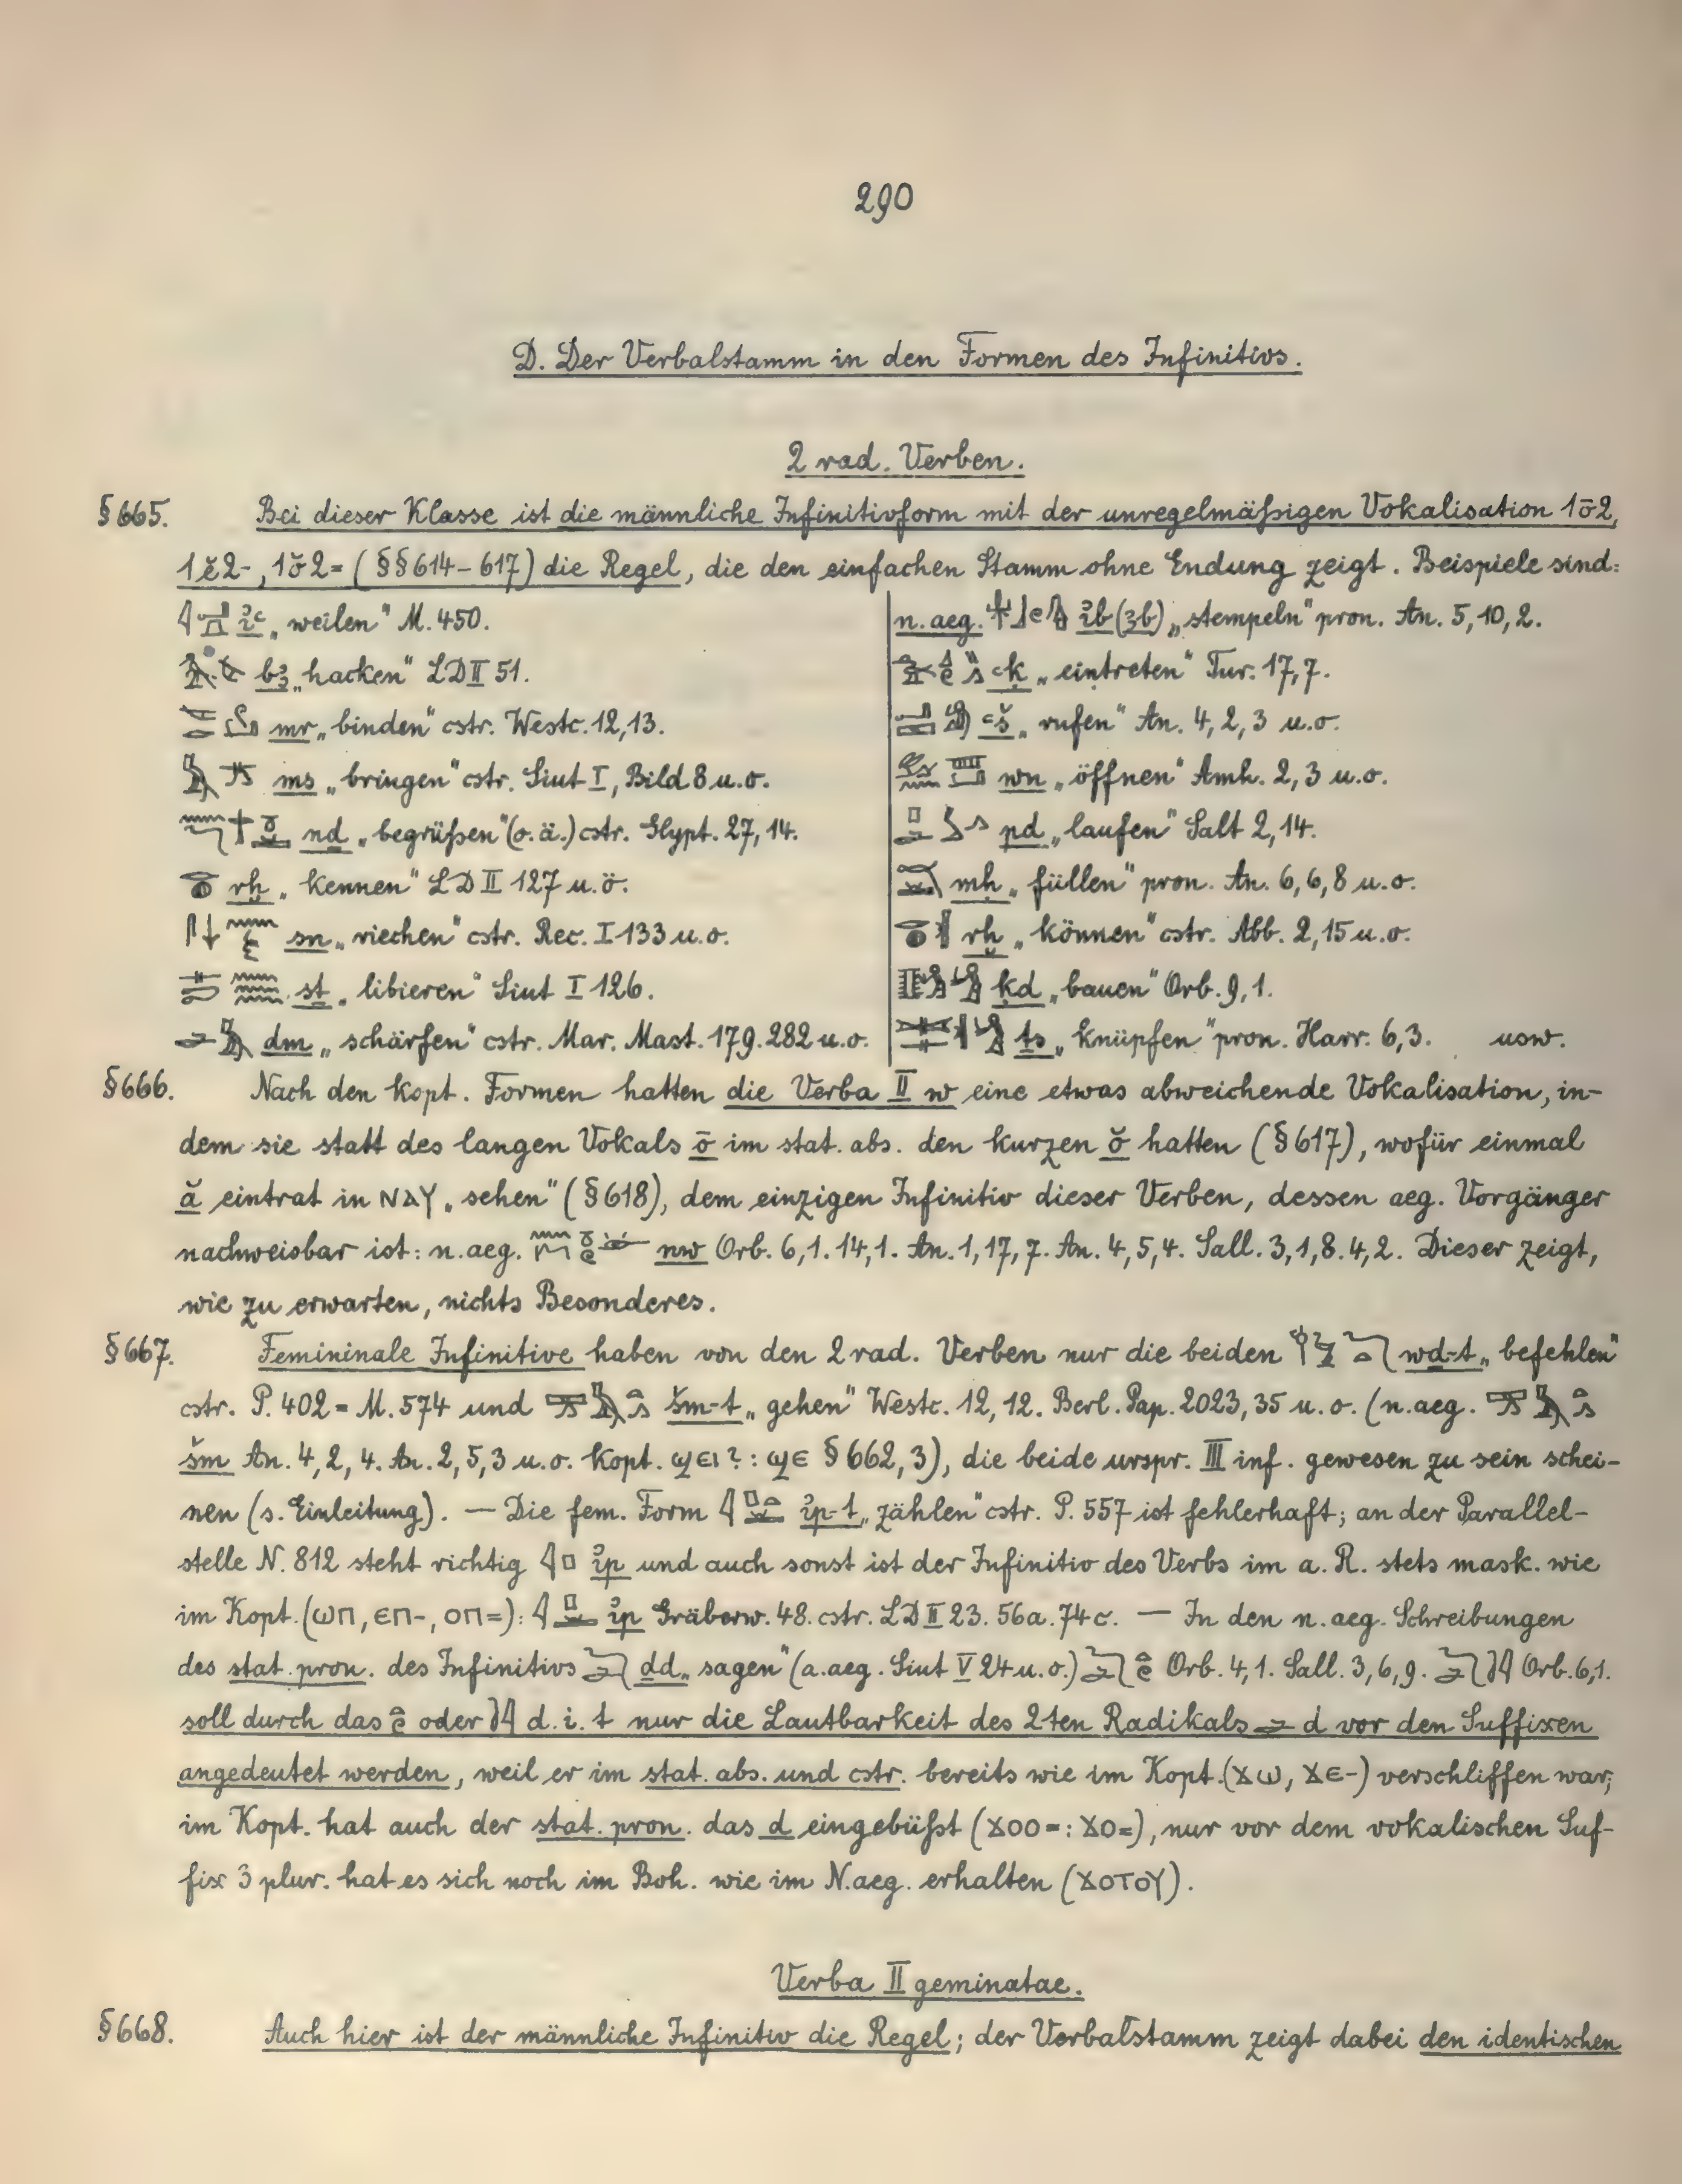 290
D. Der Verbalstamm in den Formen des Infinitivs.
2 rad. Verben.
§ 665. Bei dieser Klasse ist die männliche Infinitivform mit der unregelmäßigen Vokalisation 1ō2,
1ĕ2-, 1ŏ2= (§§ 614-617) die Regel, die den einfachen Stamm ohne Endung zeigt. Beispiele sind:
„weilen" M. 450.
bꜣ „hacken" LD II 51.
mr „binden" cstr. Westc. 12,13.
ms „bringen" cstr. Siut I, Bild 8 u. o.
nḏ „begrüßen" (o. ä.) cstr. Glypt. 27,14.
rḫ „kennen" LD II 127 u. ö.
sn „riechen" cstr. Rec. I 133 u. o.
sṯ „libieren" Siut I 126.
dm „schärfen" cstr. Mar. Mast. 179. 282 u. o.
n. aeg. ꞽb (ꜣb) „stempeln" pron. An. 5, 10, 2.
ꜥḳ „eintreten" Tur. 17,7.
ꜥš „rufen" An. 4, 2, 3 u. o.
wn „öffnen" Amh. 2, 3 u. o.
pd „laufen" Salt 2, 14.
mḥ „füllen" pron. An. 6, 6, 8 u. o.
rḫ „können" cstr. Abb. 2, 15 u. o.
ḳd „bauen" Orb. 9, 1.
ṯs „knüpfen" pron. Harr. 6, 3. usw.
§ 666. Nach den kopt. Formen hatten die Verba II w eine etwas abweichende Vokalisation, in-
dem sie statt des langen Vokals ō im stat. abs. den kurzen ŏ hatten (§ 617), wofür einmal
ă eintrat in ⲚⲀⲨ „sehen" (§ 618), dem einzigen Infinitiv dieser Verben, dessen aeg. Vorgänger
nachweisbar ist: n. aeg. nw Orb. 6, 1. 14, 1. An. 1, 17, 7. An. 4, 5, 4. Sall. 3, 1, 8. 4, 2. Dieser zeigt,
wie zu erwarten, nichts Besonderes.
§ 667. Femininale Infinitive haben von den 2 rad. Verben nur die beiden wḏ-t „befehlen"
cstr. P. 402 = M. 574 und šm-t „gehen" Westc. 12, 12. Berl. Pap. 2023, 35 u. o. (n. aeg.
šm An. 4, 2, 4. An. 2, 5, 3 u. o. kopt. ϣⲉⲓ? : ϣⲉ § 662, 3), die beide urspr. III inf. gewesen zu sein schei-
nen (s. Einleitung). — Die fem. Form ꞽp-t „zählen" cstr. P. 557 ist fehlerhaft; an der Parallel-
stelle N. 812 steht richtig ꞽp und auch sonst ist der Infinitiv des Verbs im a. R. stets mask. wie
im Kopt. (ⲱⲡ, ⲉⲡ-, ⲟⲡ=): ꞽp Gräberw. 48. cstr. LD II 23. 56a. 74c. — In den n. aeg. Schreibungen
des stat. pron. des Infinitivs ḏd „sagen" (a. aeg. Siut V 24 u. o.) Orb. 4, 1. Sall. 3, 6, 9. Orb. 6, 1.
soll durch das oder d. i. t nur die Lautbarkeit des 2ten Radikals d vor den Suffixen
angedeutet werden, weil er im stat. abs. und cstr. bereits wie im Kopt. (ϫⲱ, ϫⲉ-) verschliffen war;
im Kopt. hat auch der stat. pron. das d eingebüßt (ϫⲟⲟ= : ϫⲟ=), nur vor dem vokalischen Suf-
fix 3 plur. hat es sich noch im Boh. wie im N. aeg. erhalten (ϫⲟⲧⲟⲩ).
Verba II geminatae.
§ 668. Auch hier ist der männliche Infinitiv die Regel; der Verbalstamm zeigt dabei den identischen